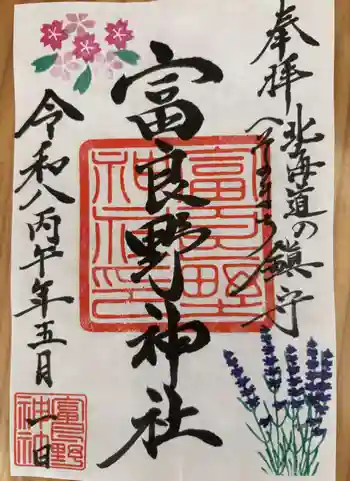 奉拝
北海道の
鎮守
富良野神社
富良野
神社印
令和八丙午年五月一日
富良野
神社